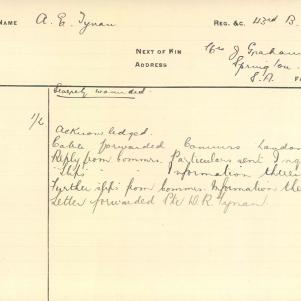 NAME A. E. Tynan REG. &C. 43rd B.
NEXT OF KIN Mrs J Graham
ADDRESS Springton.
S.A.
wounded.
1/6
Acknowledged.
Cable forwarded Commrs London
Reply from Commrs. Particulars sent
" " " information
Further from Commrs. Information the
Letter forwarded Pte W. R. Tynan.